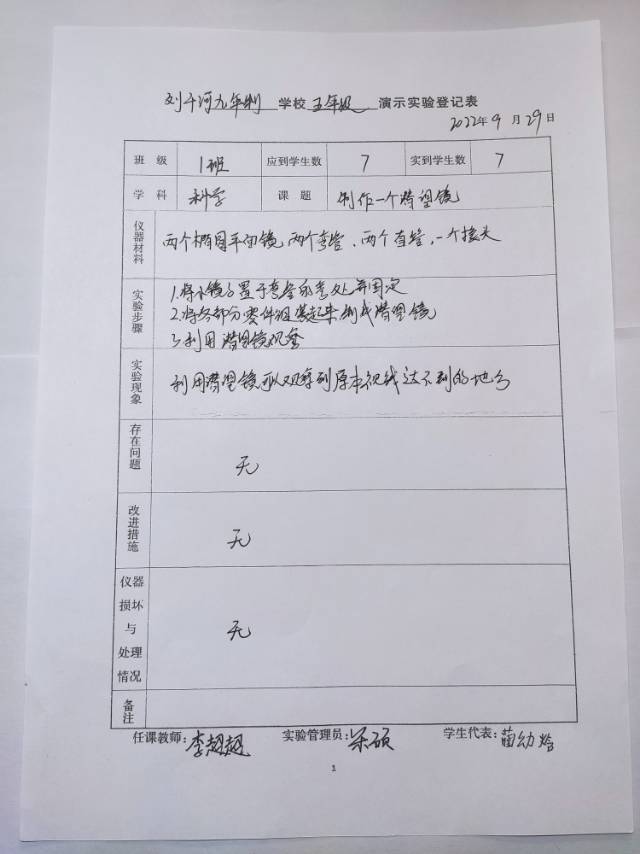 刘千河九年制 学校 五年级 演示实验登记表
2022年9月29日
班 级 1班 应到学生数 7 实到学生数 7
学 科 科学 课 题 制作一个潜望镜
仪器材料 两个椭圆平面镜,两个弯管、两个直管,一个接头
实验步骤 1.将小镜子置于弯管的弯处并固定
2.将各部分零件组装起来,制成潜望镜
3.利用潜望镜观察
实验现象 利用潜望镜可以观察到原本视线达不到的地方
存在问题 无
改进措施 无
仪器损坏与处理情况 无
备注
任课教师:李超超 实验管理员: 硕 学生代表:苗幼
1